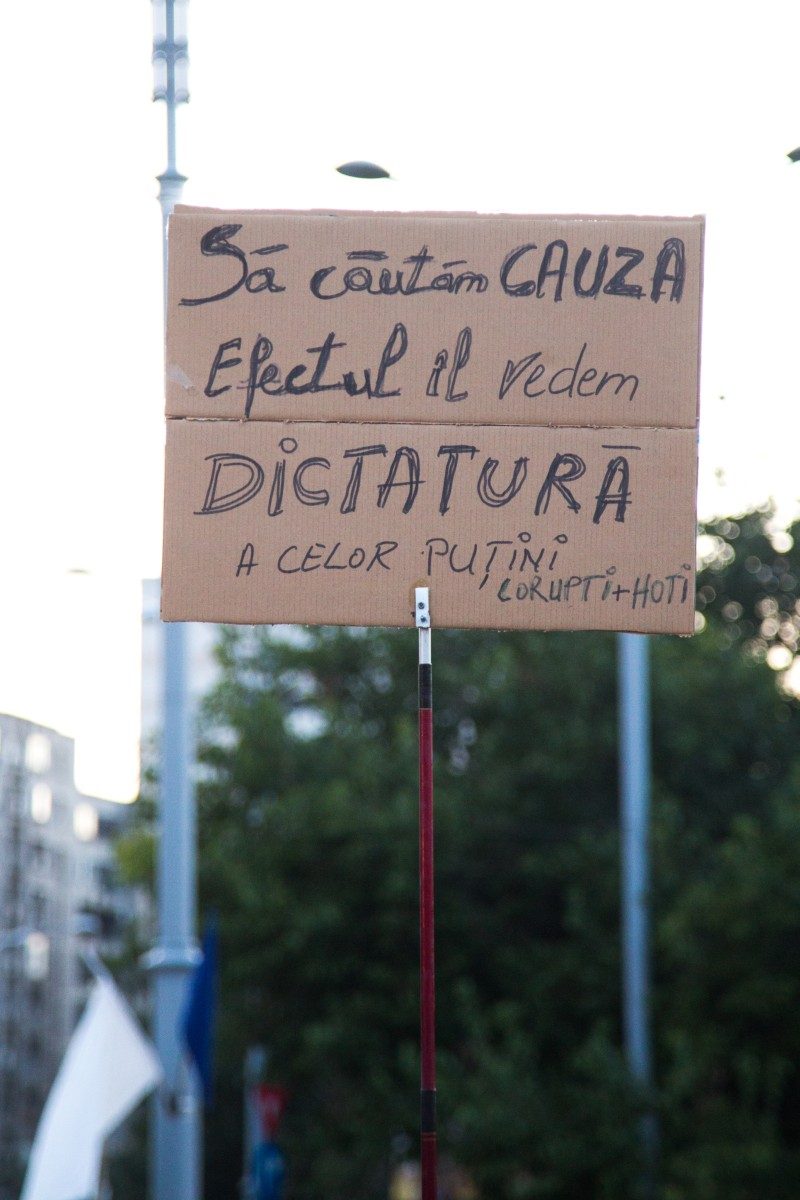 Să căutăm CAUZA
Efectul îl vedem
DICTATURĂ
A CELOR PUȚINI
CORUPTI+HOTI